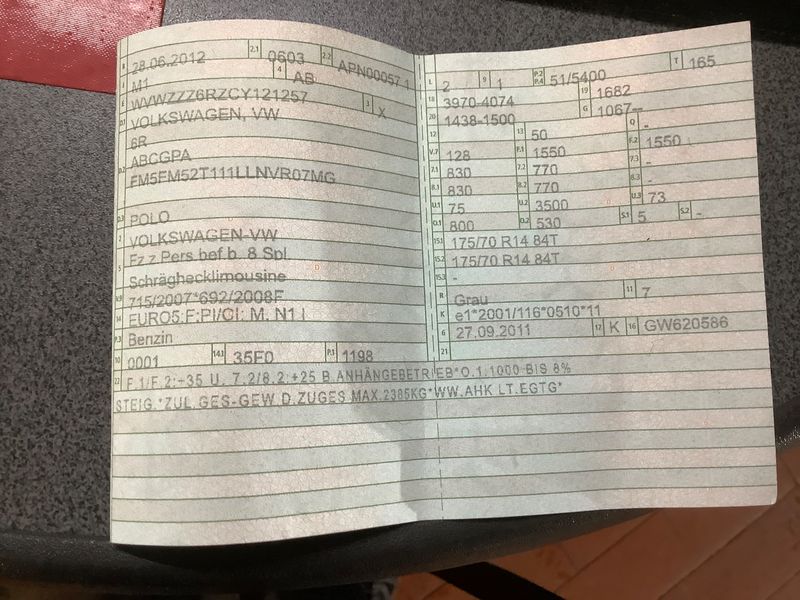 B 28.06.2012 2.1 0603 2.2 APN00057 1
J M1 4 AB
E WVWZZZ6RZCY121257 3 X
D.1 VOLKSWAGEN, VW
6R
D.2 ABCGPA
FM5FM52T111LLNVR07MG
D.3 POLO
2 VOLKSWAGEN-VW
5 Fz.z.Pers.bef.b. 8 Spl.
Schräghecklimousine
V.9 715/2007*692/2008F
14 EURO5;F;PI/CI; M, N1 I
P.3 Benzin
10 0001 14.1 35F0 P.1 1198
L 2 9 1 P.2 P.4 51/5400 T 165
18 3970-4074 19 1682
20 1438-1500 G 1067--
12 - 13 50 Q -
V.7 128 F.1 1550 F.2 1550
7.1 830 7.2 770 7.3 -
8.1 830 8.2 770 8.3 -
U.1 75 U.2 3500 U.3 73
O.1 800 O.2 530 S.1 5 S.2 -
15.1 175/70 R14 84T
15.2 175/70 R14 84T
15.3 -
R Grau 11 7
K e1*2001/116*0510*11
6 27.09.2011 17 K 16 GW620586
21
22 F.1/F.2:+35 U. 7.2/8.2:+25 B.ANHÄNGEBETRIEB*O.1:1000 BIS 8%
STEIG.*ZUL.GES-GEW.D.ZUGES MAX.2385KG*WW.AHK LT.EGTG*